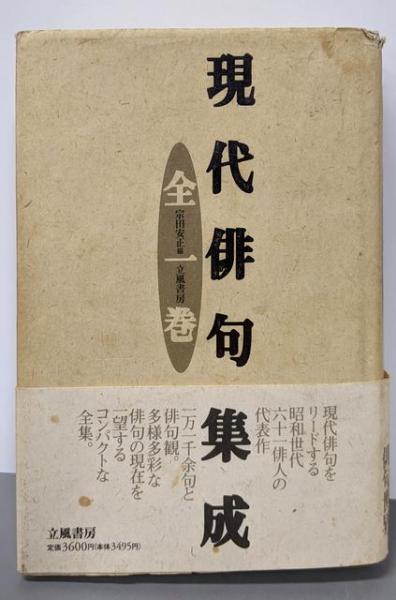 現代俳句集成
全一巻
宗田安正編 立風書房
現代俳句を
リードする
昭和世代
六十一俳人の
代表作
一万一千余句と
俳句観。
多様多彩な
俳句の現在を
一望する
コンパクトな
全集。
立風書房
定価3600円(本体3495円)